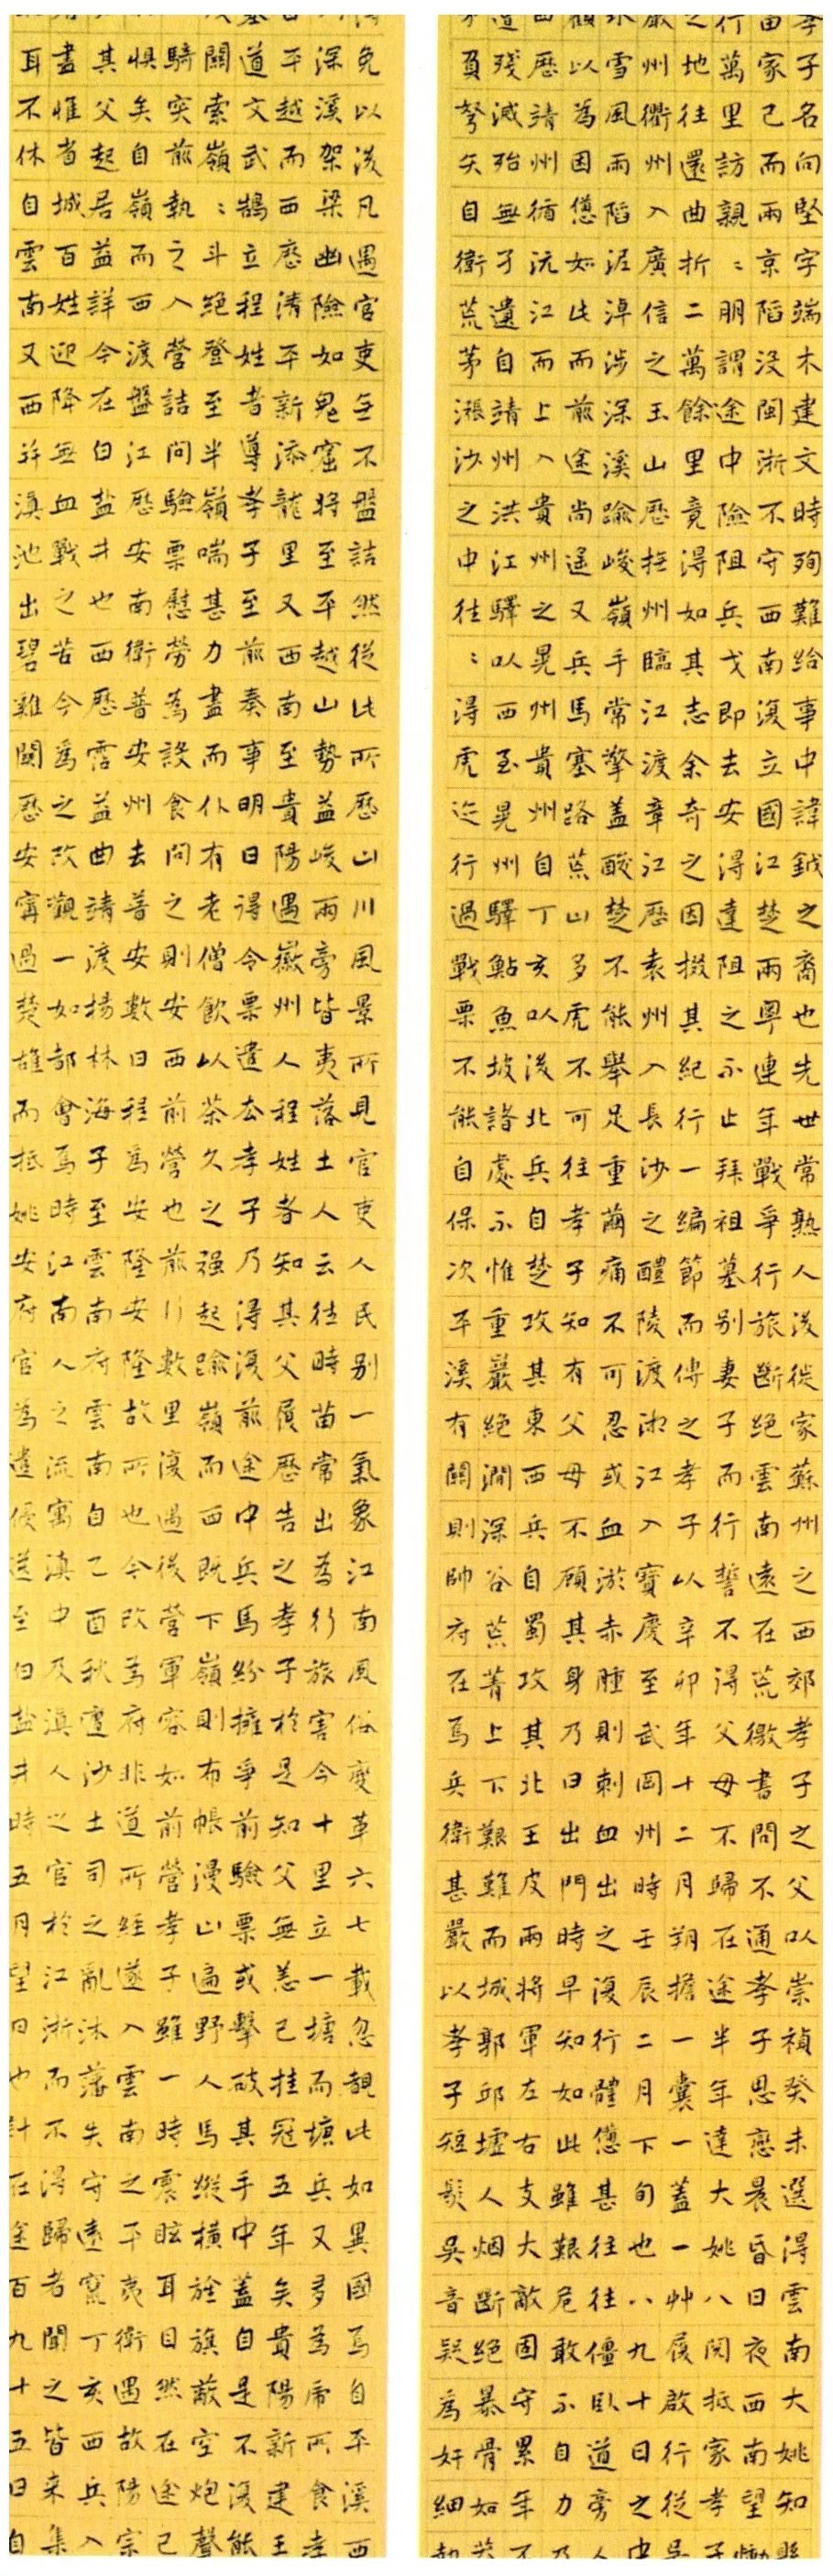 孝子名向堅字端木建文時殉難給事中諱鉞之裔也先世常熟人後徙家蘇州之西郊孝子之父以崇禎癸未選得雲南大姚知縣
家己而兩京陷没閩浙不守西南復立國江楚兩粤連年戰爭行旅斷絕雲南遠在荒徼書問不通孝子思戀晨昏日夜西南望慟
行萬里訪親〻朋謂途中險阻兵戈即去安得達阻之不止拜祖墓別妻子而行誓不得父母不歸在途半年達大姚八閱抵家孝子
之地往還曲折二萬餘里竟得如其志余奇之因掇其紀行一編節而傳之孝子以辛卯年十二月朔擔一囊一蓋一艸履啟行從吳
嚴州衢州入廣信之玉山歷撫州臨江渡章江歷袁州入長沙之醴陵渡湘江入寶慶至武岡州時壬辰二月下旬也八九十日之中
冰雪風雨陷泥淖涉深溪踰峻嶺手常擎蓋酸楚不能舉足重繭痛不可忍或血淤赤腫則刺血出之復行體憊甚往往僵臥道旁人
顧以為困憊如此而前途尚遥又兵馬塞路荒山多虎不可往孝子知有父母不顧其身乃曰出門時早知如此雖艱危敢不自力乃
西歷靖州循沅江而上入貴州之晃州貴州自丁亥以後北兵自楚攻其東西兵自蜀攻其北王皮兩將軍左右支大敵固守累年不
道殘滅殆無孑遺自靖州洪江驛以西至晃州驛鮎魚坡諸處不惟重巖絕澗深谷荒菁上下艱難而城郭邱墟人烟斷絕暴骨如莽
矛負弩矢自衛荒茅漲沙之中往〻得虎迹行過戰栗不能自保次平溪有關則帥府在焉兵衛甚嚴以孝子短髮吳音疑為奸細執
得免以後凡遇官吏無不盤詰然從此所歷山川風景所見官吏人民別一氣象江南風俗變革六七載忽覩此如異國焉自平溪西
深溪架梁幽險如鬼窟將至平越山勢益峻兩旁皆夷落土人云往時苗常出為行旅害今十里立一塘而塘兵又多為虎所食孝
平越而西歷清平新添龍里又西南至貴陽遇徽州人程姓者知其父履歷告之孝子於是知父無恙已挂冠五年矣貴陽新建王
道文武鵠立程姓者導孝子至前奏事明日得令票遣去孝子乃得復前途中兵馬紛擁爭前驗票或擊破其手中蓋自是不復能
關索嶺〻斗絕登至半嶺喘甚力盡而仆有老僧飲以茶久之強起踰嶺而西既下嶺則布帳漫山遍野人馬縱橫旌旗蔽空炮聲
騎突前執之入營詰問驗票慰勞為設食問之則安西前營也前行數里復過後營軍容如前營孝子雖一時震眩耳目然在途已
惧矣自嶺而西渡盤江歷安南衛普安州去普安數日程為安隆安隆故所也今改為府非道所經遂入雲南之平夷衛過故陽宗
其父起居益詳今在白盐井也西歷霑益曲靖渡楊林海子至雲南府雲南自乙酉秋遭沙土司之亂沐藩失守遠竄丁亥西兵入
盡惟省城百姓迎降無血戰之苦今為之改觀一如都會焉時江南人之流寓滇中及滇人之官於江浙而不得歸者聞之皆来集
耳不休自雲南又西幷滇池出碧雞關歷安寧過楚雄而抵姚安府官為遣優送至白盐井時五月望日也計在途百九十五日自